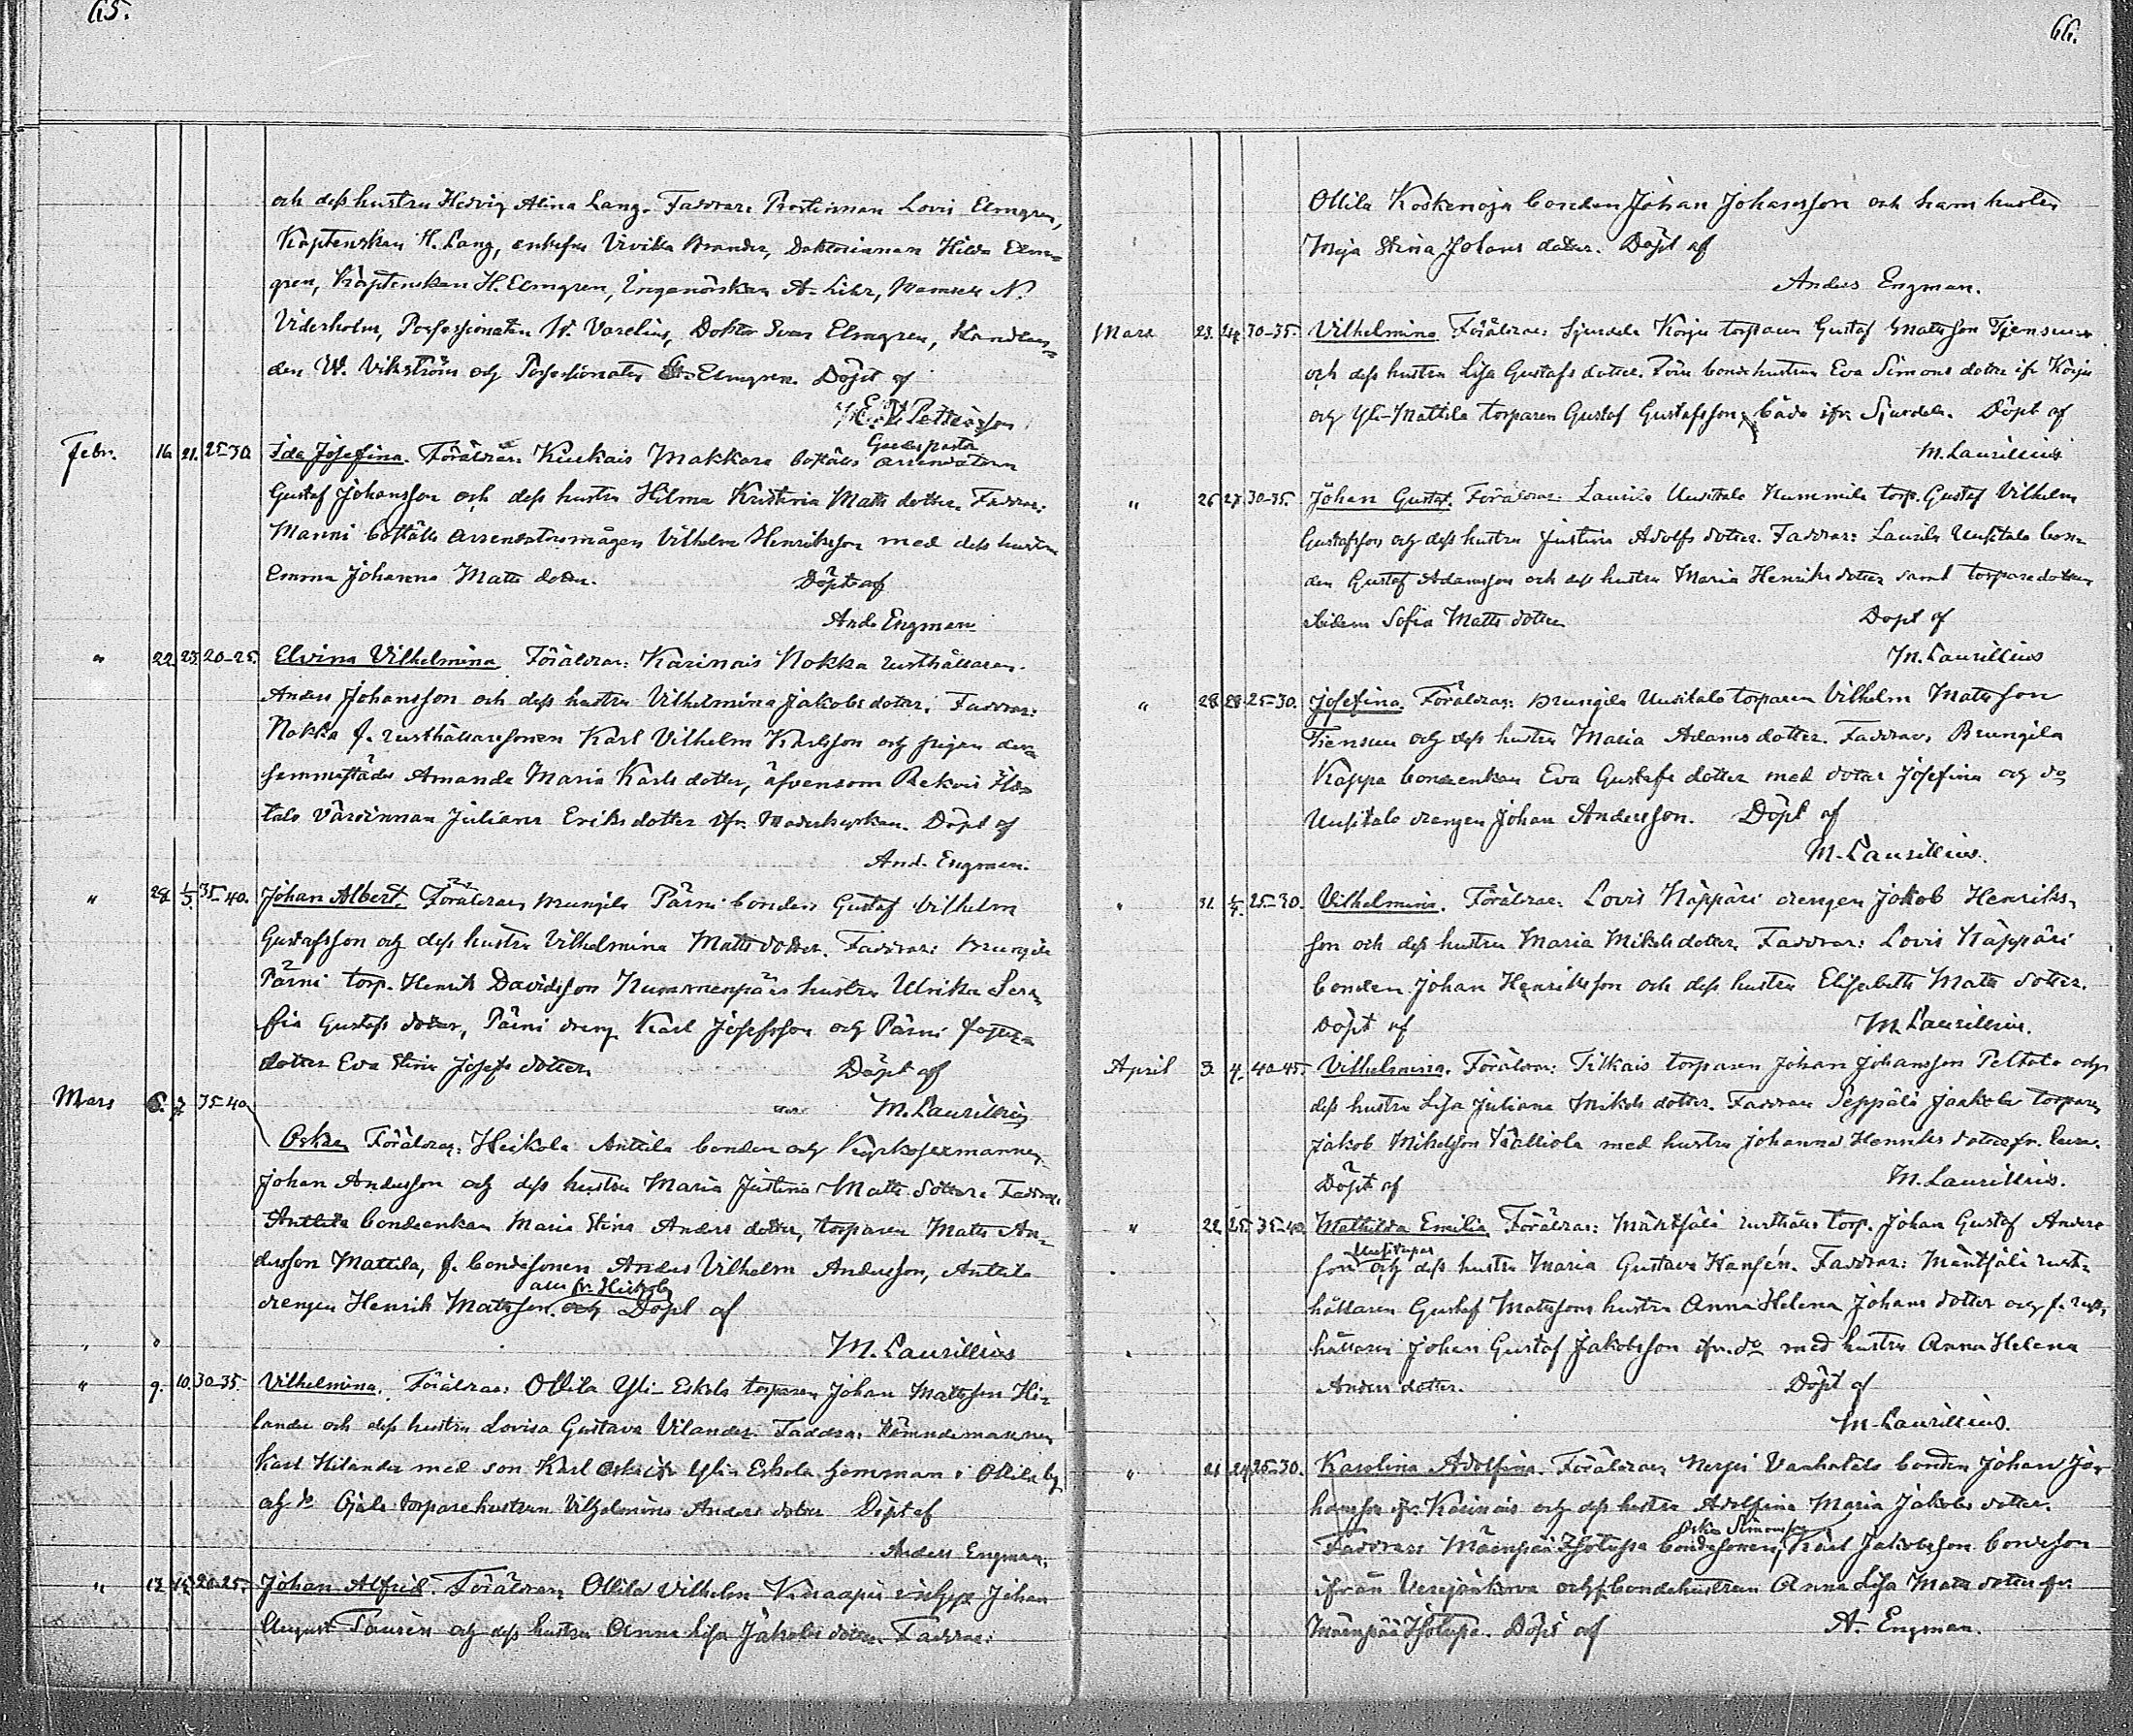 65.
och dess hustru Hedvig Alina Lang. Faddrar: Prostinnan Lovis Elmgren,
Kaptenskan H. Lang, enkefru Vivika Brander, Doktorinnan Hilda Elm-
gren, Kaptenskan H. Elmgren, A. Lihr, Mamsell N.
Viderholm, Possessionaten W. Varelius, Doktor Svan Elmgren, Handlan-
den W. Vikström och Possessionaten Elmgren. Döpt af
Petterson
Febr. 16. 21. 25-30. Ida Josefina. Föräldrar: Kiukais Makkara boställs arrendatorn
Gustaf Johansson och dess hustru Hilma Kristina Matts dotter. Faddrar:
Manni boställs arrendatorsmågen Vilhelm Henriksson med dess hustru
Emma Johanna Matts dotter. Döpt af
And. Engman
" 22. 23. 20-25. Elvina Vilhelmina Föräldrar: Karinais Nokka rusthållaren
Anders Johansson och dess hustru Vilhelmina Jakobs dotter. Faddrar:
Nokka f. rusthållaresonen Karl Vilhelm Karlsson och pigan der-
hemmastädes Amanda Maria Karls dotter, äfvensom Rekois Iso-
talo värdinnan Juliana Eriks dotter ifr. Maskukyrkan. Döpt af
And. Engman.
" 28. 1/3. 35-40. Johan Albert. Föräldrar: Mungila Pärni bonden Gustaf Vilhelm
Gustafsson och dess hustru Vilhelmina Matts dotter. Faddrar:
Pärni torp. Henrik Davidsson Nummenpää's hustru Ulrika Sera-
fia Gustafs dotter, Pärni dreng Karl Josefsson och Pärni
dotter Eva Stina Josefs dotter. Döpt af
M. Laurillius
Mars 6. 7. 35-40
Oskar Föräldrar: Heikola Anttila bonden och Kyrkosexmannen
Johan Andersson och dess hustru Maria Justina Matts dotter. Faddrar:
Anttila bondeenkan Maria Stina Anders dotter, torparen Matts An-
dersson Mattila, f. bondesonen Anders Vilhelm Andersson, Anttila
alla fr. Heikola
drengen Henrik Matsson. och Döpt af
" " M. Laurillius
" 9. 10. 30-35. Vilhelmina. Föräldrar: Ollila Yli-Eskola torparen Johan Mattsson Hi-
lander och dess hustru Lovisa Gustava Vilander. Faddrar: Nämndemannen
Karl Hilander med son Karl Oskar ifr. Yli-Eskola hemman i Ollila by
och Ojala torparehustrun Vilhelmina Anders dotter Döpt af
Anders Engman.
" 13. 15. 20-25. Johan Alfred. Föräldrar: Ollila Vilhelm Knaapis inhys Johan
August Taurén och dess hustru Anna Lisa Jakobs dotter. Faddrar:
66.
Ollila Koskenoja bonden Johan Johansson och hans hustru
Maja Stina Johans dotter. Döpt af
Anders Engman.
Mars 23. 24. 30-35. Vilhelmina. Föräldrar: Sjundela Korju torparen Gustaf Matsson Tiensuu
och dess hustru Lisa Gustafs dotter. bondehustrun Eva Simons dotter ifr. Korju
och Yli-Mattila torparen Gustaf Gustafsson, båda ifr. Sjundela. Döpt af
M. Laurillius
" 26. 27. 30-35. Johan Gustaf. Föräldrar: Laurila Uusitalo Nummila torp. Gustaf Vilhelm
Gustafsson och dess hustru Justina Adolfs dotter. Faddrar: Laurila Uusitalo bon-
den Gustaf Adamsson och dess hustru Maria Henriks dotter samt torparedottren
ibidem Sofia Matts dotter Döpt af
M. Laurillius
" 28. 28. 25-30. Josefina. Föräldrar: Mungila Uusitalo torparen Vilhelm Matsson
Tiensuu och dess hustru Maria Adams dotter. Faddrar: Mungila
Kappa bondeenkan Eva Gustafs dotter med dotter Josefina och do
Uusitalo drengen Johan Andersson. Döpt af
M. Laurillius.
" 31. 1/4. 25-30. Vilhelmina. Föräldrar: Lovis Näppäri drengen Jakob Henriks-
son och dess hustru Maria Mikels dotter. Faddrar: Lovis Näppäri
bonden Johan Henriksson och dess hustru Elisabeth Matts dotter.
Döpt af M. Laurillius.
April 3. 4. 40-45. Vilhelmina. Föräldrar: Tilkais torparen Johan Johansson Peltola och
dess hustru Lisa Juliana Mikels dotter. Faddrar: Seppälä Jaakola torparen
Jakob Mikelsson Vaalliola med hustru Johanna Henriks dotter fr. Eura.
Döpt af M. Laurillius.
" 22. 25. 35-40. Mathilda Emilia. Föräldrar: Mäntsälä rusthålls torp. Johan Gustaf Anders-
Uusitupa
son och dess hustru Maria Gustava Hansén. Faddrar: Mäntsälä rust-
hållaren Gustaf Matssons hustru Anna Helena Johans dotter och f. rust-
hållaren Johan Gustaf Jakobsson ifr. do med hustru Anna Helena
Anders dotter. Döpt af
M. Laurillius.
" 21. 24. 25-30. Karolina Adolfina. Föräldrar: Vanhatalo bonden Johan Jo-
hansson ifr. Karinais och dess hustru Adolfina Maria Jakobs dotter.
Oskar Simonsson
Faddrar: Mäenpää Isotupa bondesonen, Karl Jakobsson bondeson
ifrån och f. bondehustrun Anna Lisa Matts dotter fr.
Mäenpää Isotupa. Döpt af A. Engman.